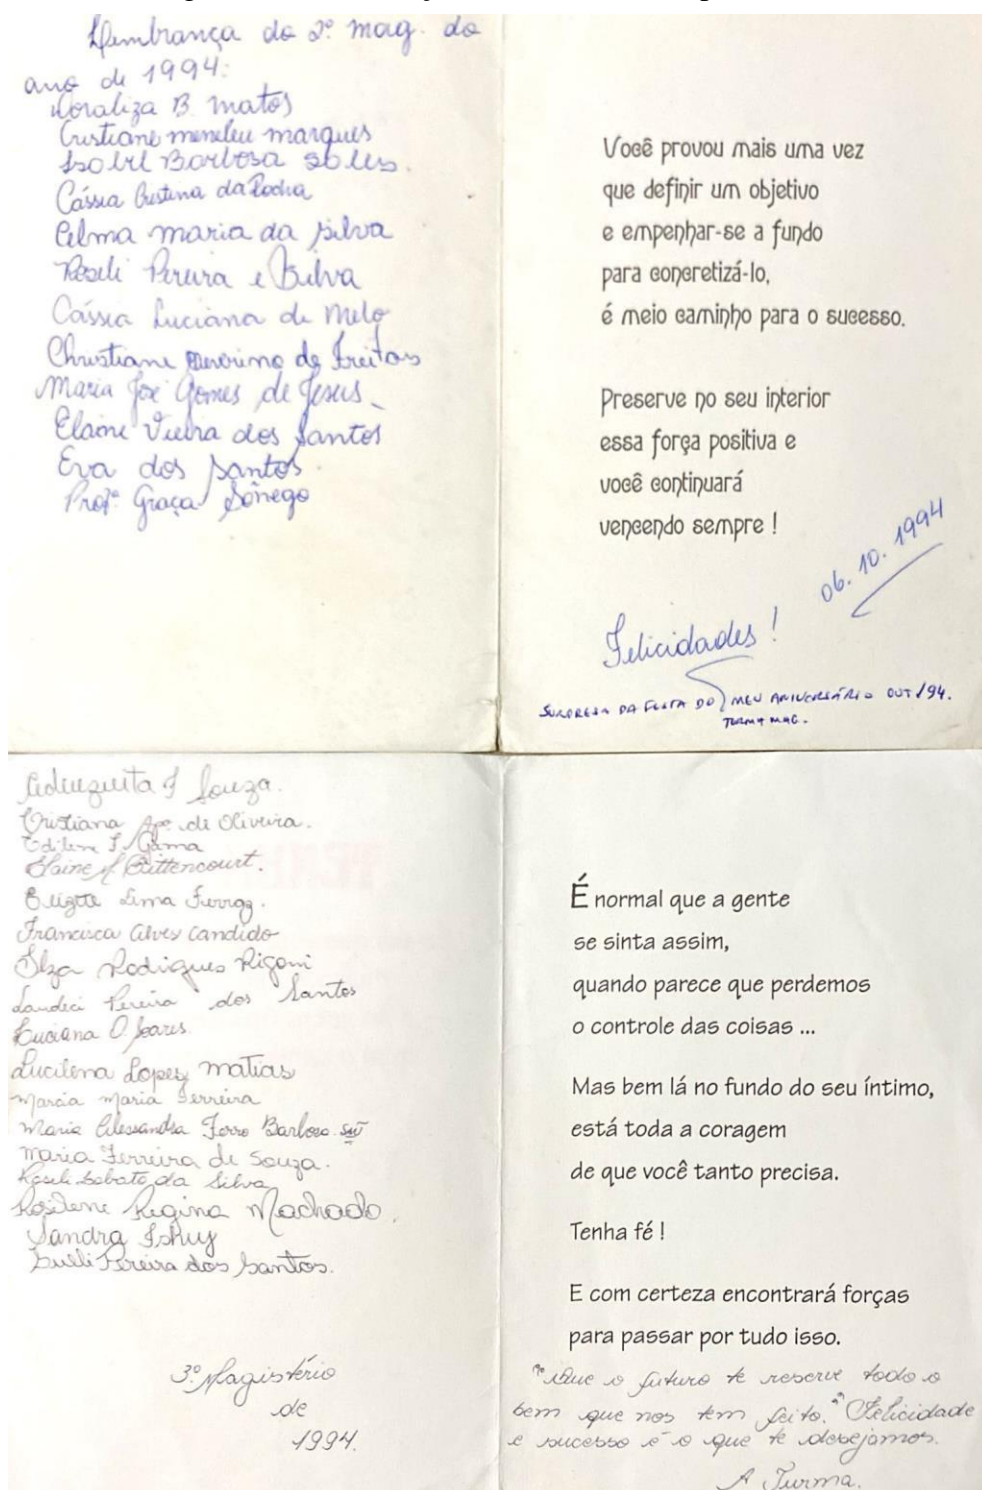 Lembrança do 2º mag. do
ano de 1994:
Doraliza B. Matos
Cristiane meneleu marques
Isabel Barbosa
Cássia Cristina da Rocha
Celma maria da silva
Roseli Pereira e Silva
Cássia Luciana de Melo
Christiane de Freitas
Maria José Gomes de Jesus
Elaine Vieira dos Santos
Eva dos Santos
Profª Graça Sônego
Você provou mais uma vez
que definir um objetivo
e empenhar-se a fundo
para concretizá-lo,
é meio caminho para o sucesso.
Preserve no seu interior
essa força positiva e
você continuará
vencendo sempre !
06.10.1994
Felicidades!
SURPRESA DA FESTA DO MEU ANIVERSÁRIO OUT/94.
TURMA MAG.
Souza.
Cristiana Apª de Oliveira.
Edilene F. Gama
Elaine Bittencourt.
Lima
Francisca Alves Candido
Ilza Rodrigues Rigoni
Laudeci Pereira dos Santos
Luciana O. Soares
Lucilena Lopes matias
Marcia maria Ferreira
Maria Alessandra Ferro Barbosa
maria Ferreira de Souza.
Roseli Sabato da Silva
Rosilene Regina Machado.
Sandra
Sueli Pereira dos Santos.
3º Magistério
de
1994.
É normal que a gente
se sinta assim,
quando parece que perdemos
o controle das coisas ...
Mas bem lá no fundo do seu íntimo,
está toda a coragem
de que você tanto precisa.
Tenha fé !
E com certeza encontrará forças
para passar por tudo isso.
"Que o futuro te reserve todo o
bem que nos tem feito." Felicidade
e sucesso é o que te desejamos.
A Turma.